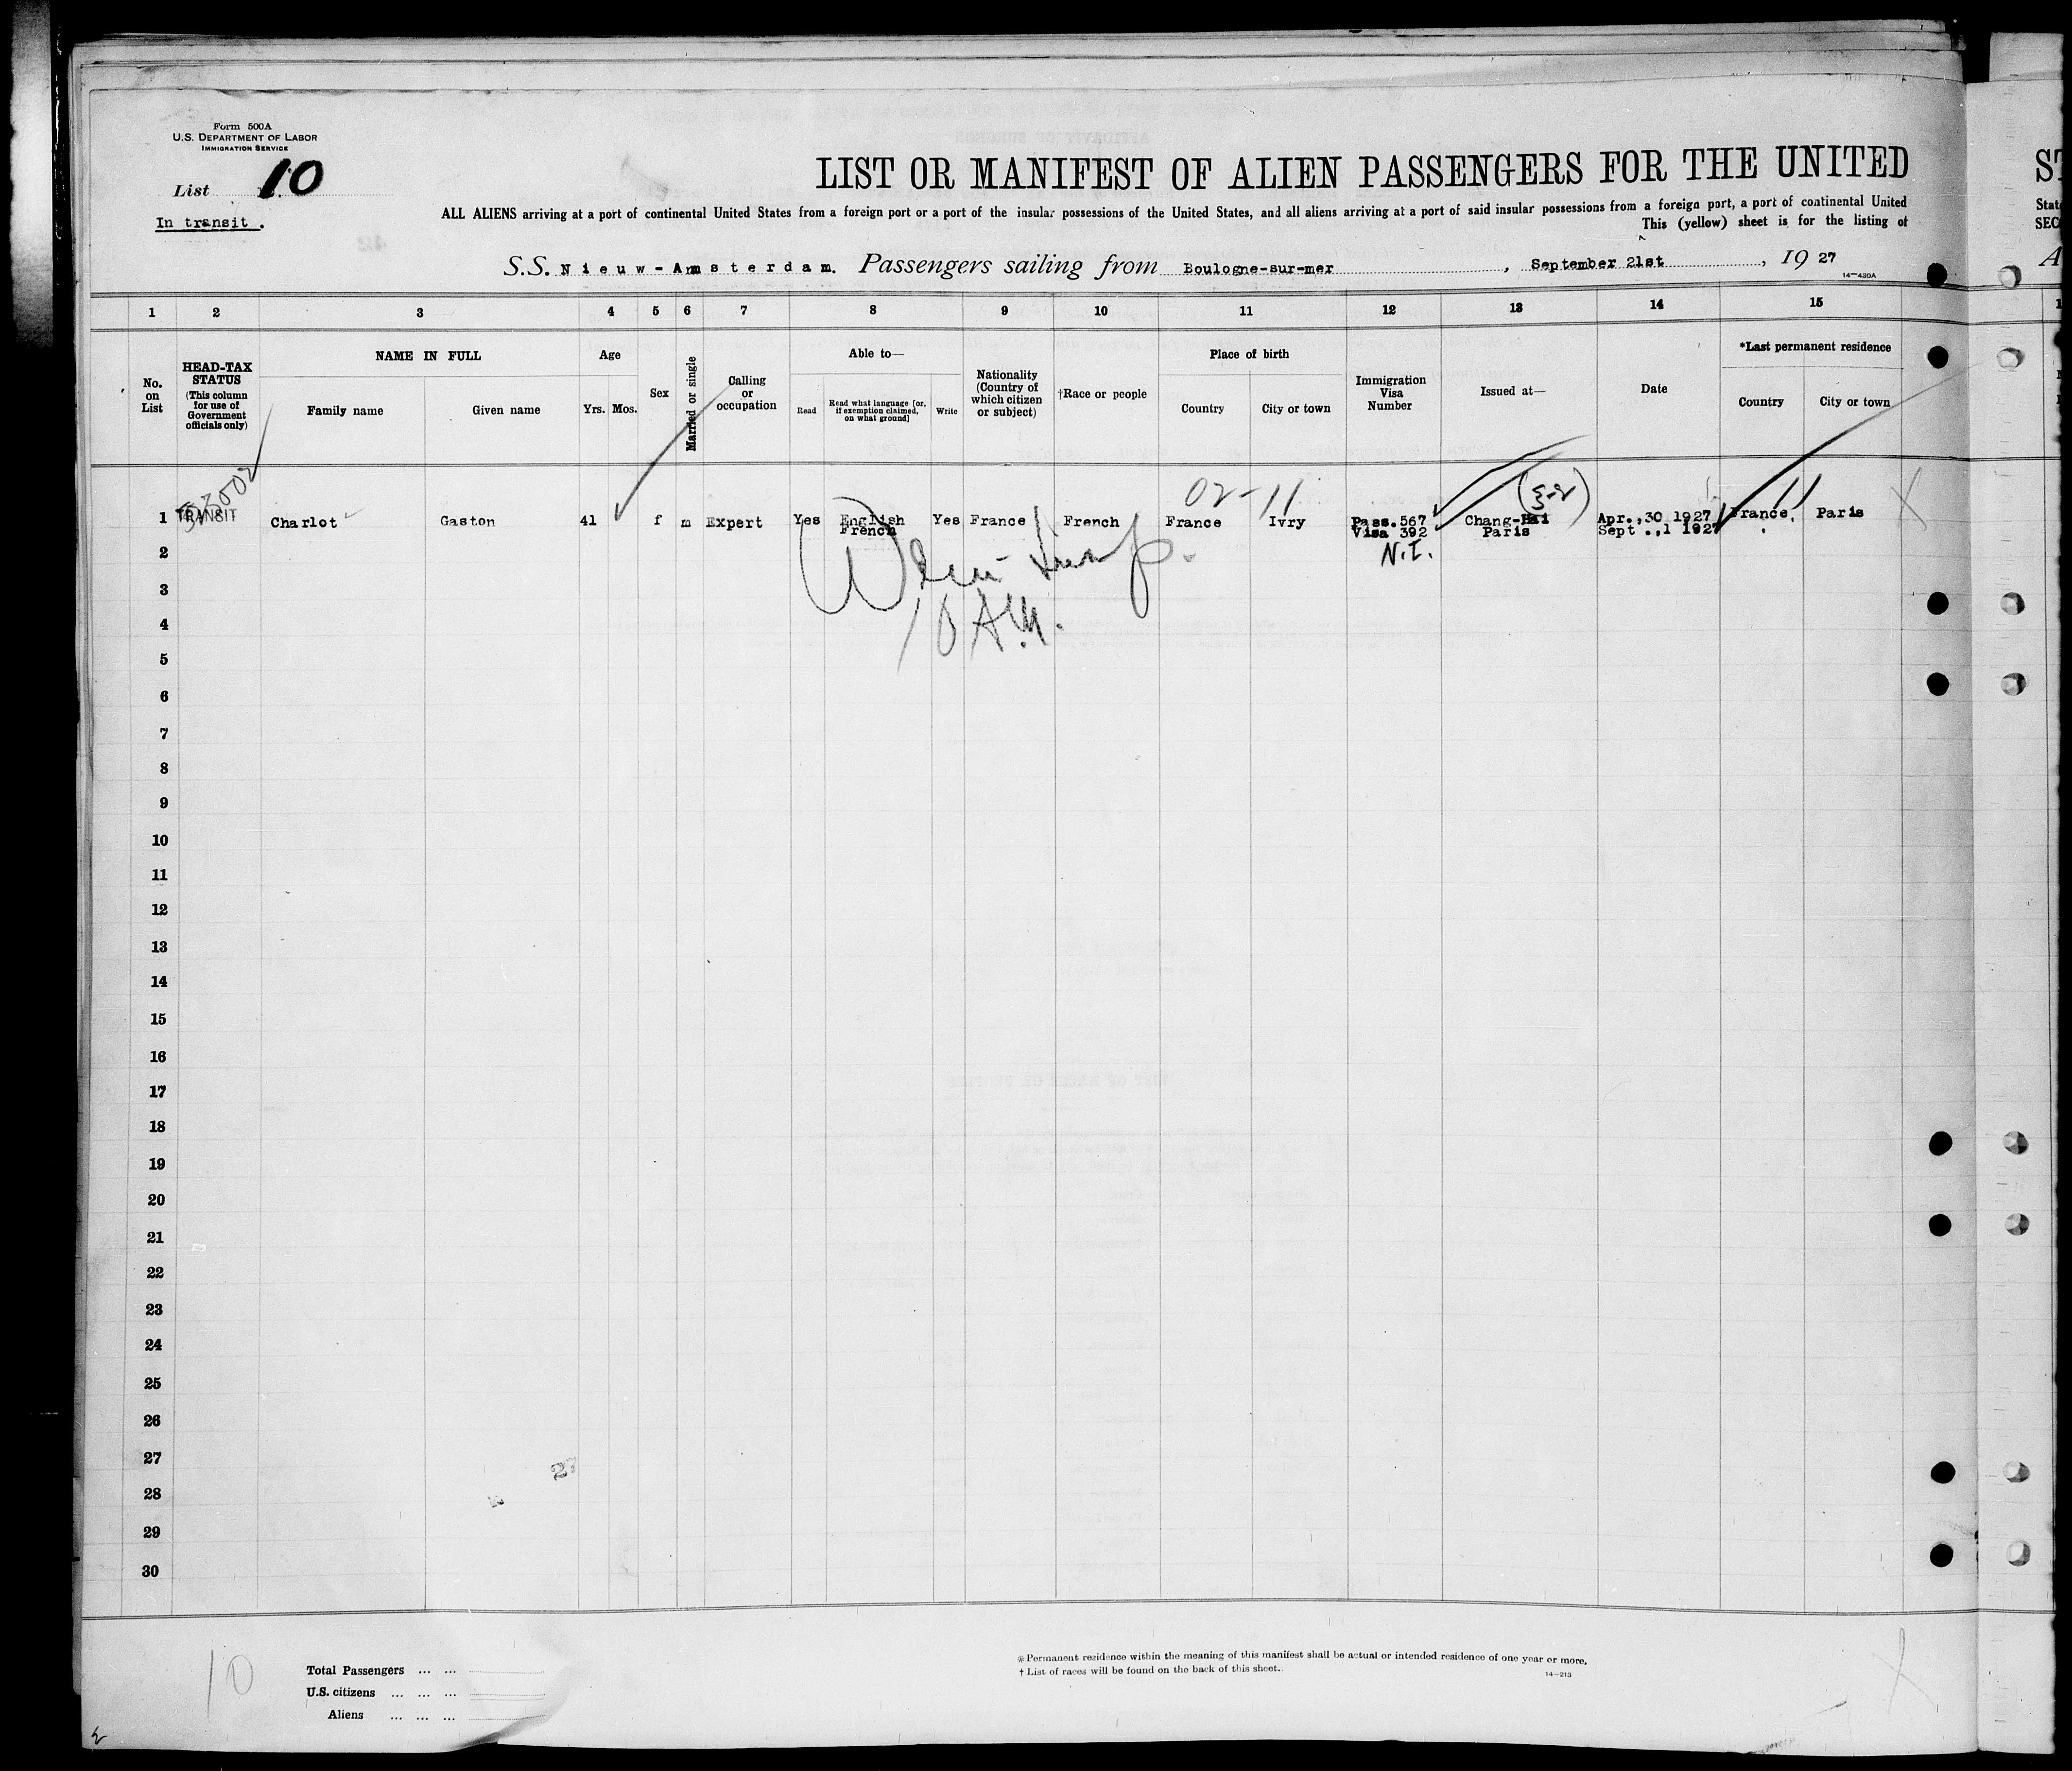 Form 500A
U.S. DEPARTMENT OF LABOR
IMMIGRATION SERVICE
List 10
In transit.
LIST OR MANIFEST OF ALIEN PASSENGERS FOR THE UNITED
ALL ALIENS arriving at a port of continental United States from a foreign port or a port of the insular possessions of the United States, and all aliens arriving at a port of said insular possessions from a foreign port, a port of continental United
This (yellow) sheet is for the listing of
S.S. Nieuw-Amsterdam. Passengers sailing from Boulogne-sur-mer, September 21st, 1927
14-430A
1 2 3 4 5 6 7 8 9 10 11 12 13 14 15
No. on List
HEAD-TAX STATUS (This column for use of Government officials only)
NAME IN FULL
Family name
Given name
Age
Yrs. Mos.
Sex
Married or single
Calling or occupation
Able to—
Read
Read what language [or, if exemption claimed, on what ground]
Write
Nationality (Country of which citizen or subject)
†Race or people
Place of birth
Country
City or town
Immigration Visa Number
Issued at—
Date
*Last permanent residence
Country
City or town
02-11
1 TRANSIT Charlot Gaston 41 f m Expert Yes English Yes France French France Ivry Pass.567 Chang-Hai Apr.,30 1927 France. Paris
French Visa 392 Paris Sept.,1 1927
N.I.
10 AM.
2
3
4
5
6
7
8
9
10
11
12
13
14
15
16
17
18
19
20
21
22
23
24
25
26
27
28
29
30
27
10
Total Passengers
U.S. citizens
Aliens
*Permanent residence within the meaning of this manifest shall be actual or intended residence of one year or more.
† List of races will be found on the back of this sheet.
14-213
ST
State
SEC
A